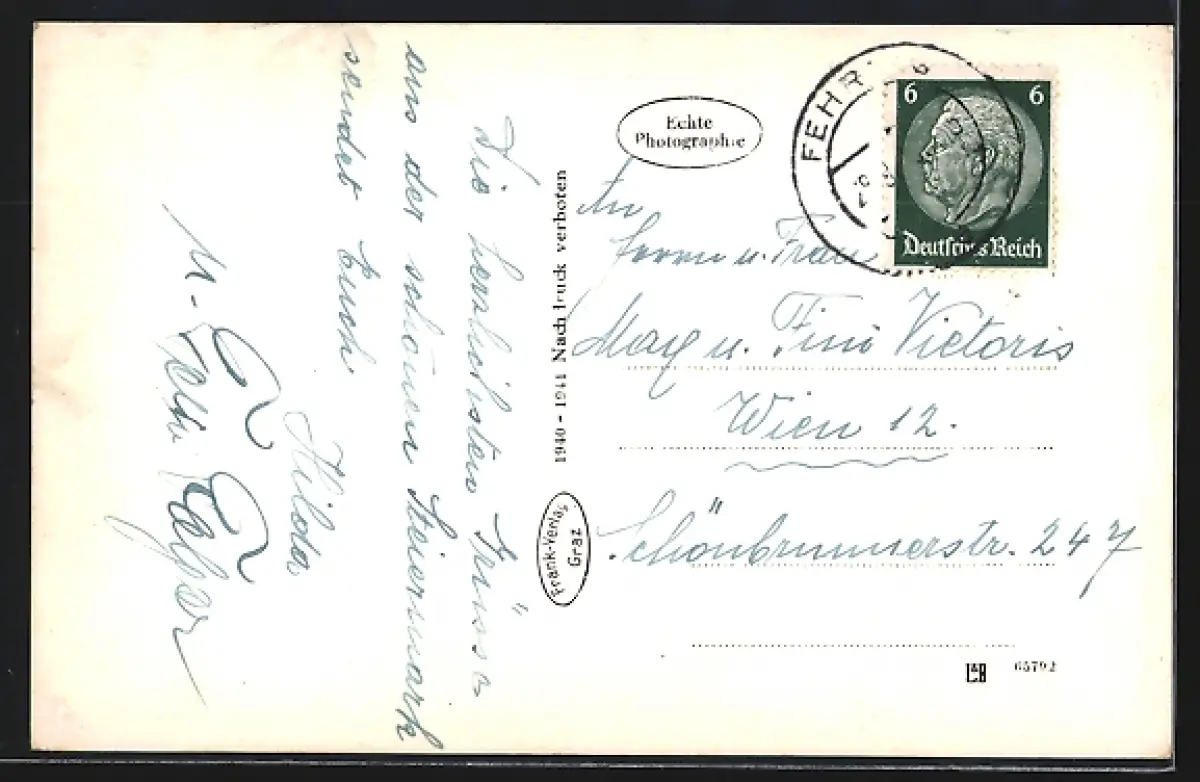 Die herzlichsten Grüsse
aus der schönen Steiermark
sendet Euch
Hilda
u.
1940 - 1941 Nachdruck verboten
Frank-Verlag
Graz
Echte
Photographie
FEHR
6 6
Deutsches Reich
An
Herrn u. Frau
Max u. Fini Victoris
Wien 12.
Schönbrunnerstr. 247
65792